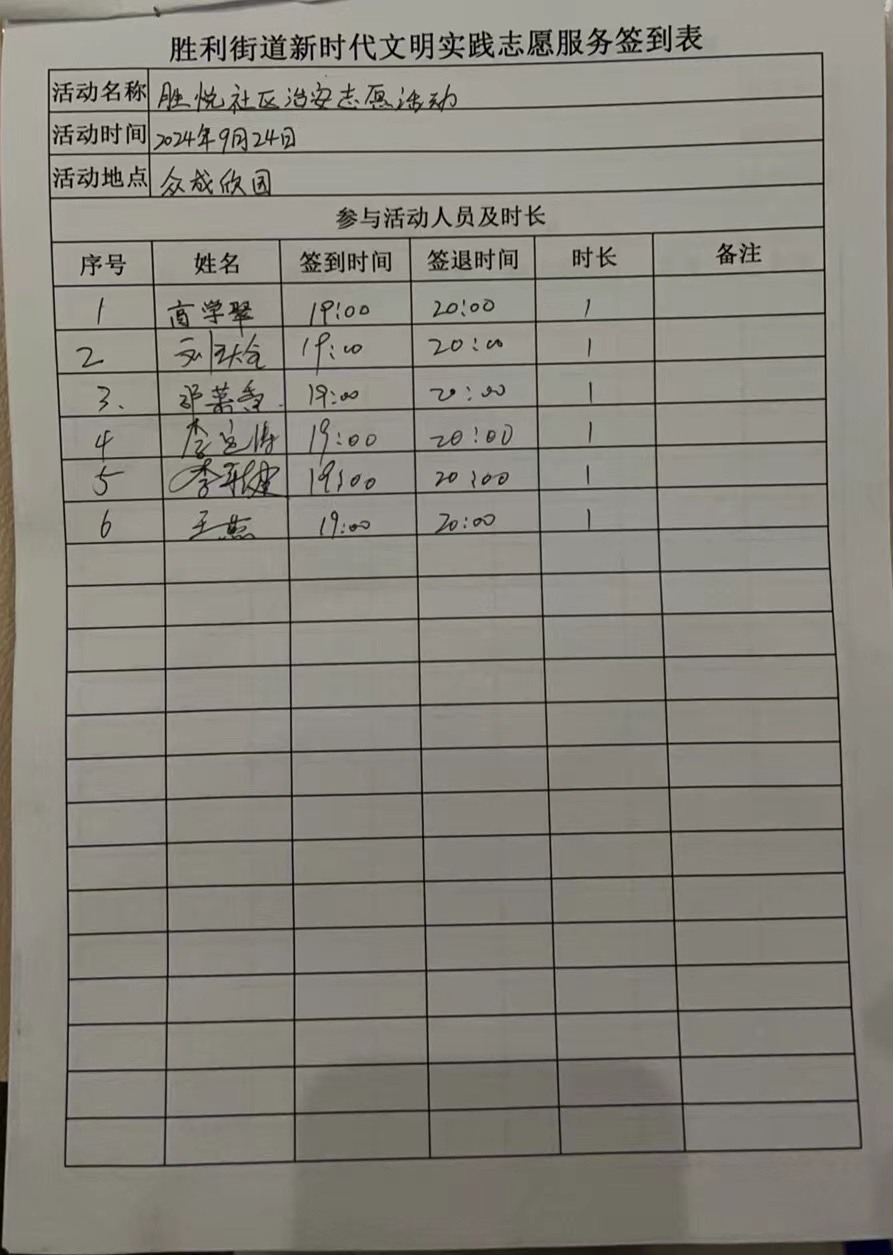 胜利街道新时代文明实践志愿服务签到表
活动名称 胜悦社区治安志愿活动
活动时间 2024年9月24日
活动地点 众成欣园
参与活动人员及时长
序号 姓名 签到时间 签退时间 时长 备注
1 商学琴 19:00 20:00 1
2 19:00 20:00 1
3. 19:00 20:00 1
4 19:00 20:00 1
5 19:00 20:00 1
6 王燕 19:00 20:00 1